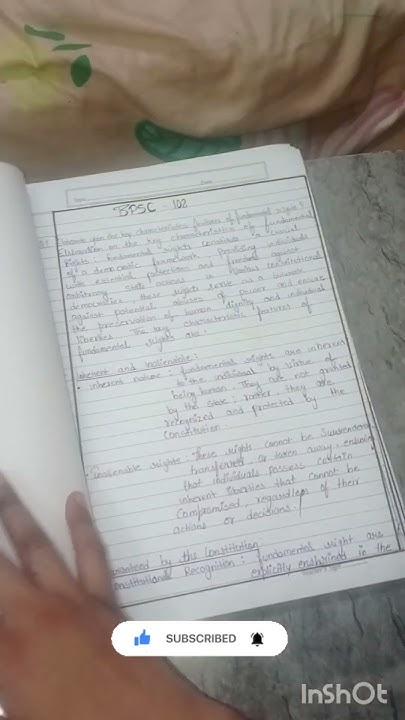 BPSC - 102
Elaborate upon the key characteristics features of fundamental rights?
Elaboration on the key characteristics of fundamental
Rights: Fundamental rights constitute a crucial
of a democratic framework, providing individuals
with essential protections and freedoms against
arbitrary state actions in various constitutional
democracies, these rights serve as a
against potential abuses of power and ensure
the preservation of human dignity and individual
liberties. The key characteristics features of
fundamental rights are:
Inherent and inalienable:
• inherent nature: fundamental rights are inherent
to the individual by virtue of
being human. They are not granted
by the state; rather, they are
recognized and protected by the
constitution.
inalienable rights: These rights cannot be surrendered,
transferred or taken away, ensuring
that individuals possess certain
inherent liberties that cannot be
compromised, regardless of their
actions or decisions.
by the Constitution
Recognition: fundamental right are
explicitly enshrined in the
SUBSCRIBED
InShOt